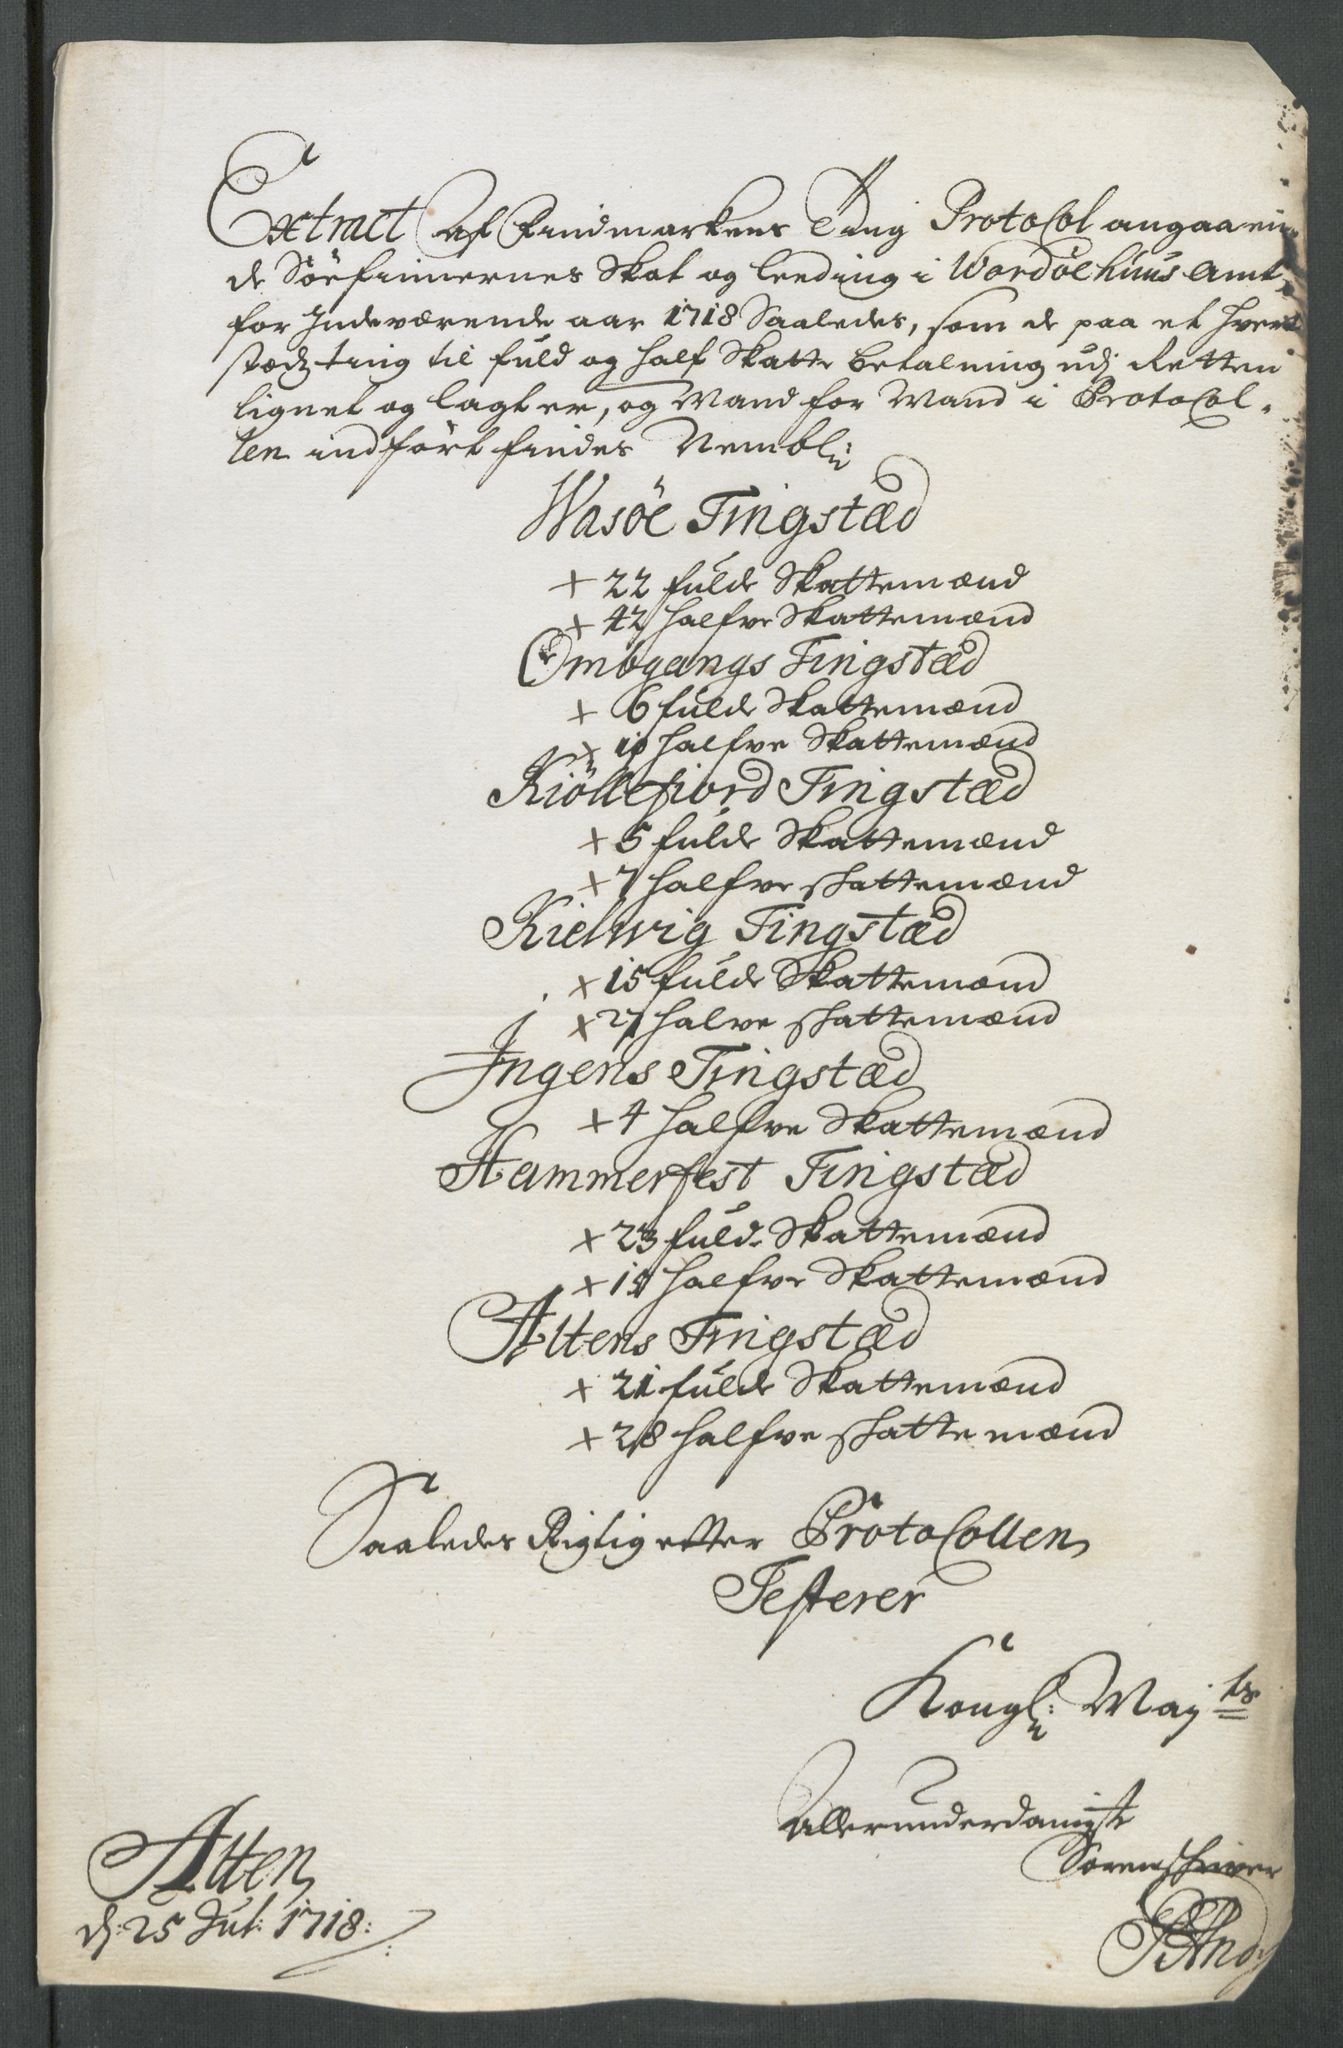 Extract Af Findmarkens Ting Protocol angaaen-
de Söefinnernes Skat og leeding i Wardöehuus Amt
for Indeværende aar 1718 Saaledes, som de paa et hvert
stædz ting til fuld og half Skatte betalning udj Retten
lignet og lagt er, og Mand for Mand i Protocol-
len indført findes Nembl:
Wasöe Tingstæd
+ 22 fulde Skattemænd
+ 42 halfve Skattemænd
Ombgangs Tingstæd
+ 6 fulde Skattemænd
+ 10 halfve Skattemænd
Kiöllefiord Tingstæd
+ 5 fulde Skattemænd
+ 7 halfve skattemænd
Kielwig Tingstæd
+ 15 fulde Skattemænd
+ 27 halve skattemænd
Ingens Tingstæd
+ 4 halfve Skattemænd
Hammerfest Tingstæd
+ 23 fulde Skattemænd
+ 19 halfve Skattemænd
Altens Tingstæd
+ 21 fulde Skattemænd
+ 28 halfve skattemænd
Saaledes Rigtig effter Protocollen,
Testerer
Kongl: May ts
Allerunderdanigste
Sorenschriver
Alten,
d: 25 Jul: 1718:
PAnd